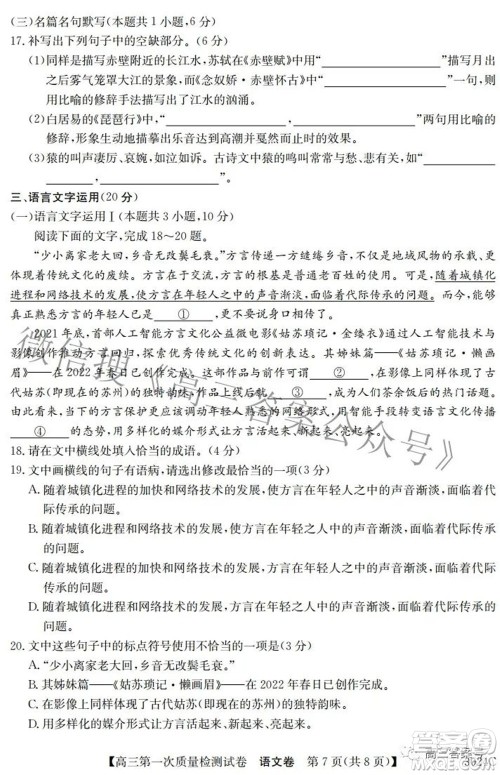 (三)名篇名句默写(本题共1小题,6分)
17.补写出下列句子中的空缺部分。(6分)
(1)同样是描写赤壁附近的长江水,苏轼在《赤壁赋》中用“____________”描写月出
之后雾气笼罩大江的景象,而《念奴娇·赤壁怀古》中“____________,____________”,则
用比喻的修辞手法描写了江水的汹涌。
(2)白居易的《琵琶行》中,“____________,____________”两句用比喻的
修辞,形象生动描写了音乐突然达到高潮并戛然而止的效果。
(3)猿的叫声凄厉、哀婉,如泣如诉。古诗文中猿的鸣叫常常代表悲伤,如“____________
____________”。
三、语言文字运用(20分)
(一)语言文字运用Ⅰ(本题共3小题,10分)
阅读下面的文字,完成18~20题。
“少小离家老大回,乡音无改鬓毛衰。”方言传递着一缕缕乡音,不仅是地域风物的表现,更
体现着传统文化的发展。方言传承传统文化,关键还是普通老百姓的使用。可是,随着城镇化
进程和网络技术的发展,使方言在年轻人之中的声音渐淡,面临着代际传承的问题。而今,能够
真正熟悉方言的年轻人已是 ① ,更不要说身口相传了。
2021年底,首部人工智能方言文化公益微电影《姑苏琐记·金缕衣》通过人工智能技术与
影像创作推动方言回归,来探索优秀传统文化的创新与发展。其姊妹篇——《姑苏琐记·懒画
眉》——在2022年春日已创作完成。这部创作与方言 ② ,在影像上同样体现了古
代姑苏(即现在的苏州)的诗意和美景,让人 ③ ,成为人们茶余饭后的热议话题,可以
 ④ ,用多样化的媒介形式让方言活起来、新起来、亮起来。
18.请在文中横线处填入恰当的成语。(4分)
19.文中画横线的句子有语病,请选出修改最恰当的一项(3分)
A.随着城镇化进程的加快和网络技术的发展,使方言在年轻人之中的声音渐淡,面临着代际
传承的问题。
B.随着城镇化进程和网络技术的发展,方言在年轻人之中的声音渐淡,面临着代际传承
的问题。
C.随着城镇化进程的加快和网络技术的发展,方言在年轻人之中的声音渐淡,面临着代际传
承的问题。
D.随着城镇化进程和网络技术的发展,使得方言在年轻人之中的声音渐淡,面临着代际传承
的问题。
20.文中这些句子中的标点符号使用不恰当的一项是(3分)
A.“少小离家老大回,乡音无改鬓毛衰。”
B.其姊妹篇——《姑苏琐记·懒画眉》——在2022年春日已创作完成。
C.在影像上同样体现了古代姑苏(即现在的苏州)的诗意和美景。
D.用多样化的媒介形式让方言活起来、新起来、亮起来。
【高三第一次质量检测试卷 语文卷 第7页(共8页)】
微信搜《高三答案公众号》